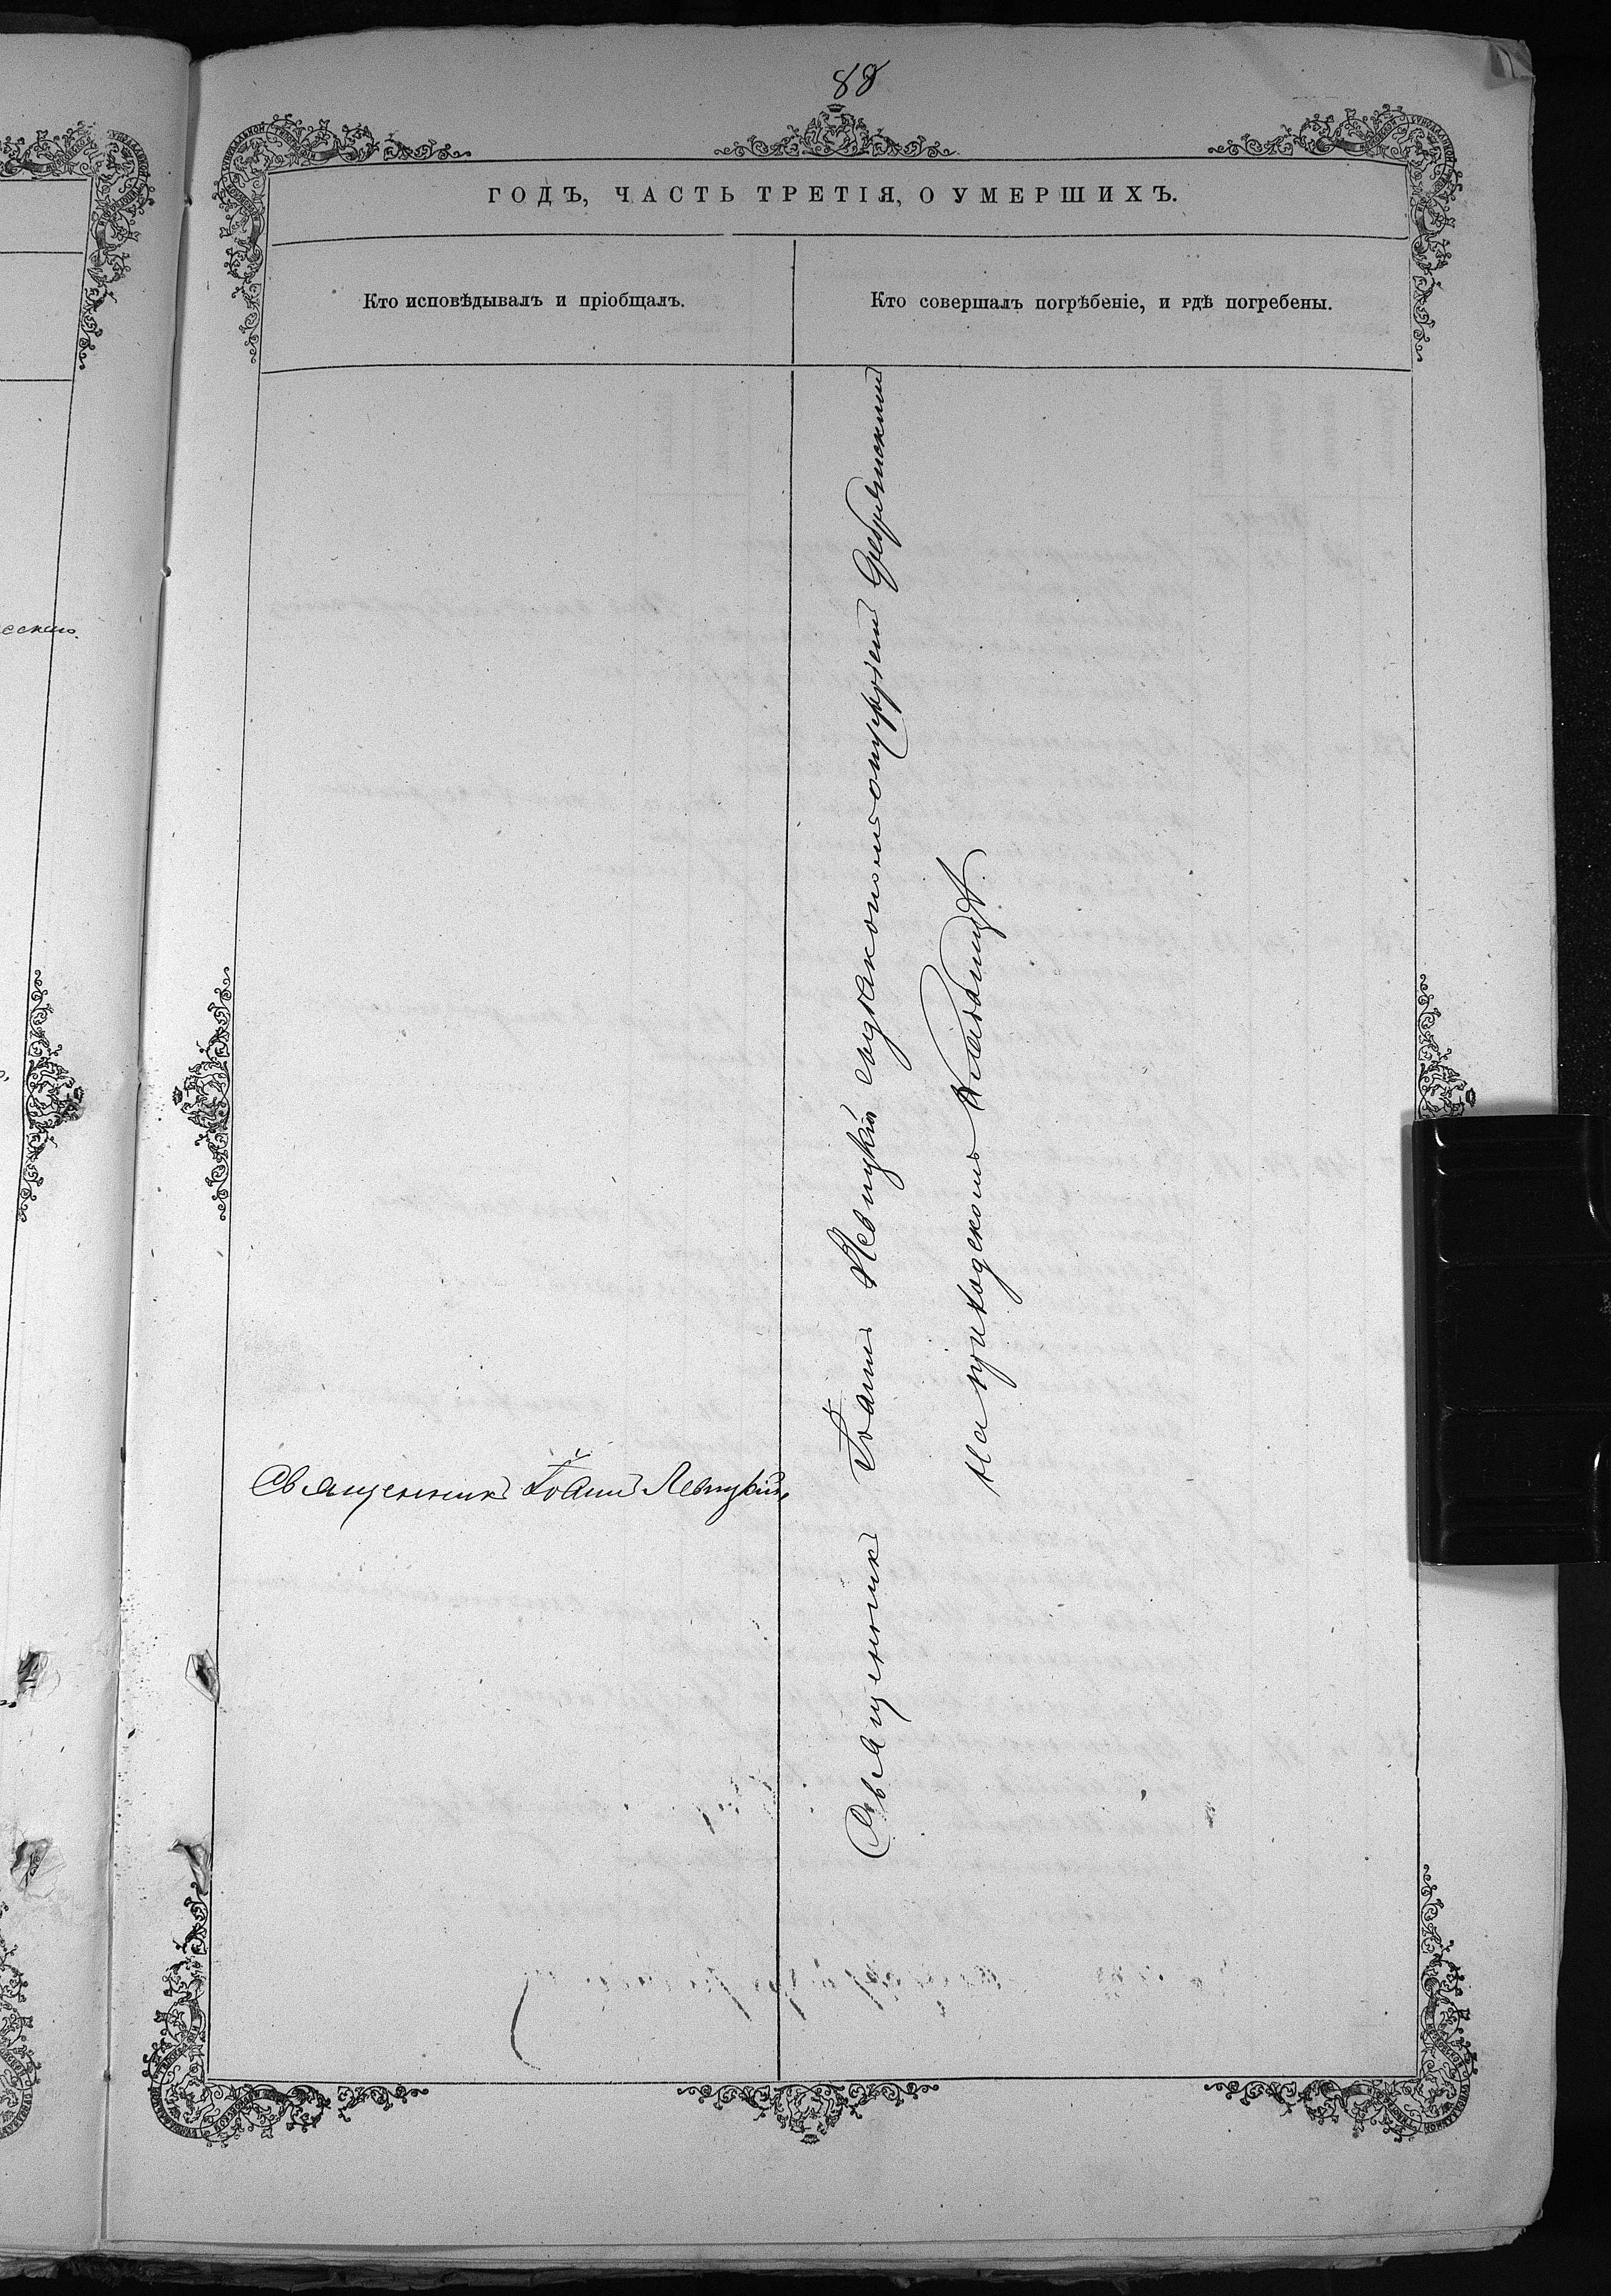 88
ГОДЪ, ЧАСТЬ ТРЕТІЯ, О УМЕРШИХЪ.
Кто исповѣдывалъ и пріобщалъ.
Кто совершалъ погрѣбеніе, и гдѣ погребены.
Священникъ Іоаннъ Левицкій
Священникъ Іоаннъ Левицкій съ дьякономъ
на приходскомъ кладбищѣ.